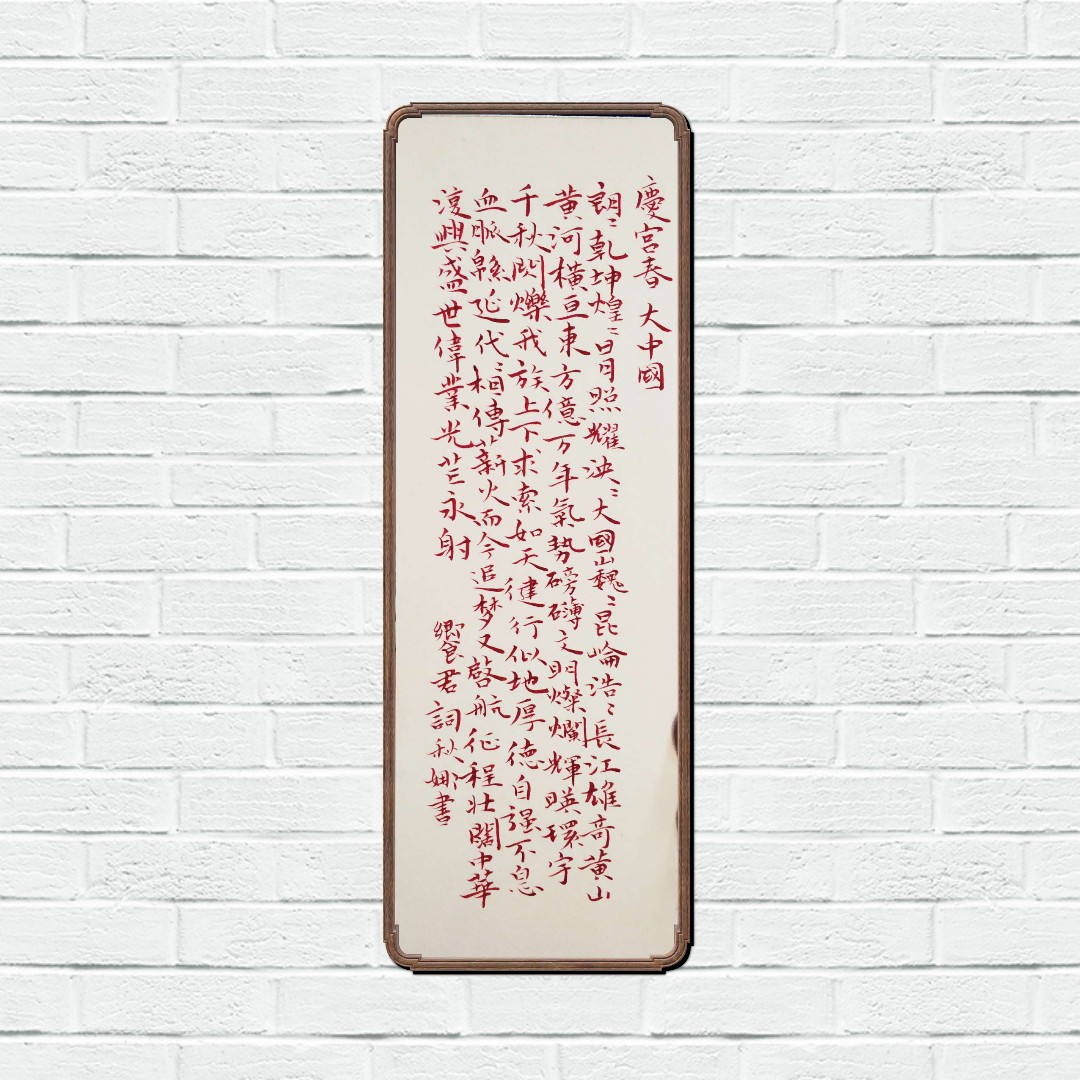 慶宮春 大中國
朗〻乾坤煌〻日月照耀泱〻大國巍〻昆崘浩〻長江雄奇黄山
黄河横亘東方億万年氣勢磅礴文明燦爛輝暎環宇
千秋閃爍我族上下求索如天健行似地厚德自强不息
血脈緜延代〻相傳薪火而今追梦又啓航征程壮闊中華
復興盛世偉業光芒永射
饗君詞秋娜書